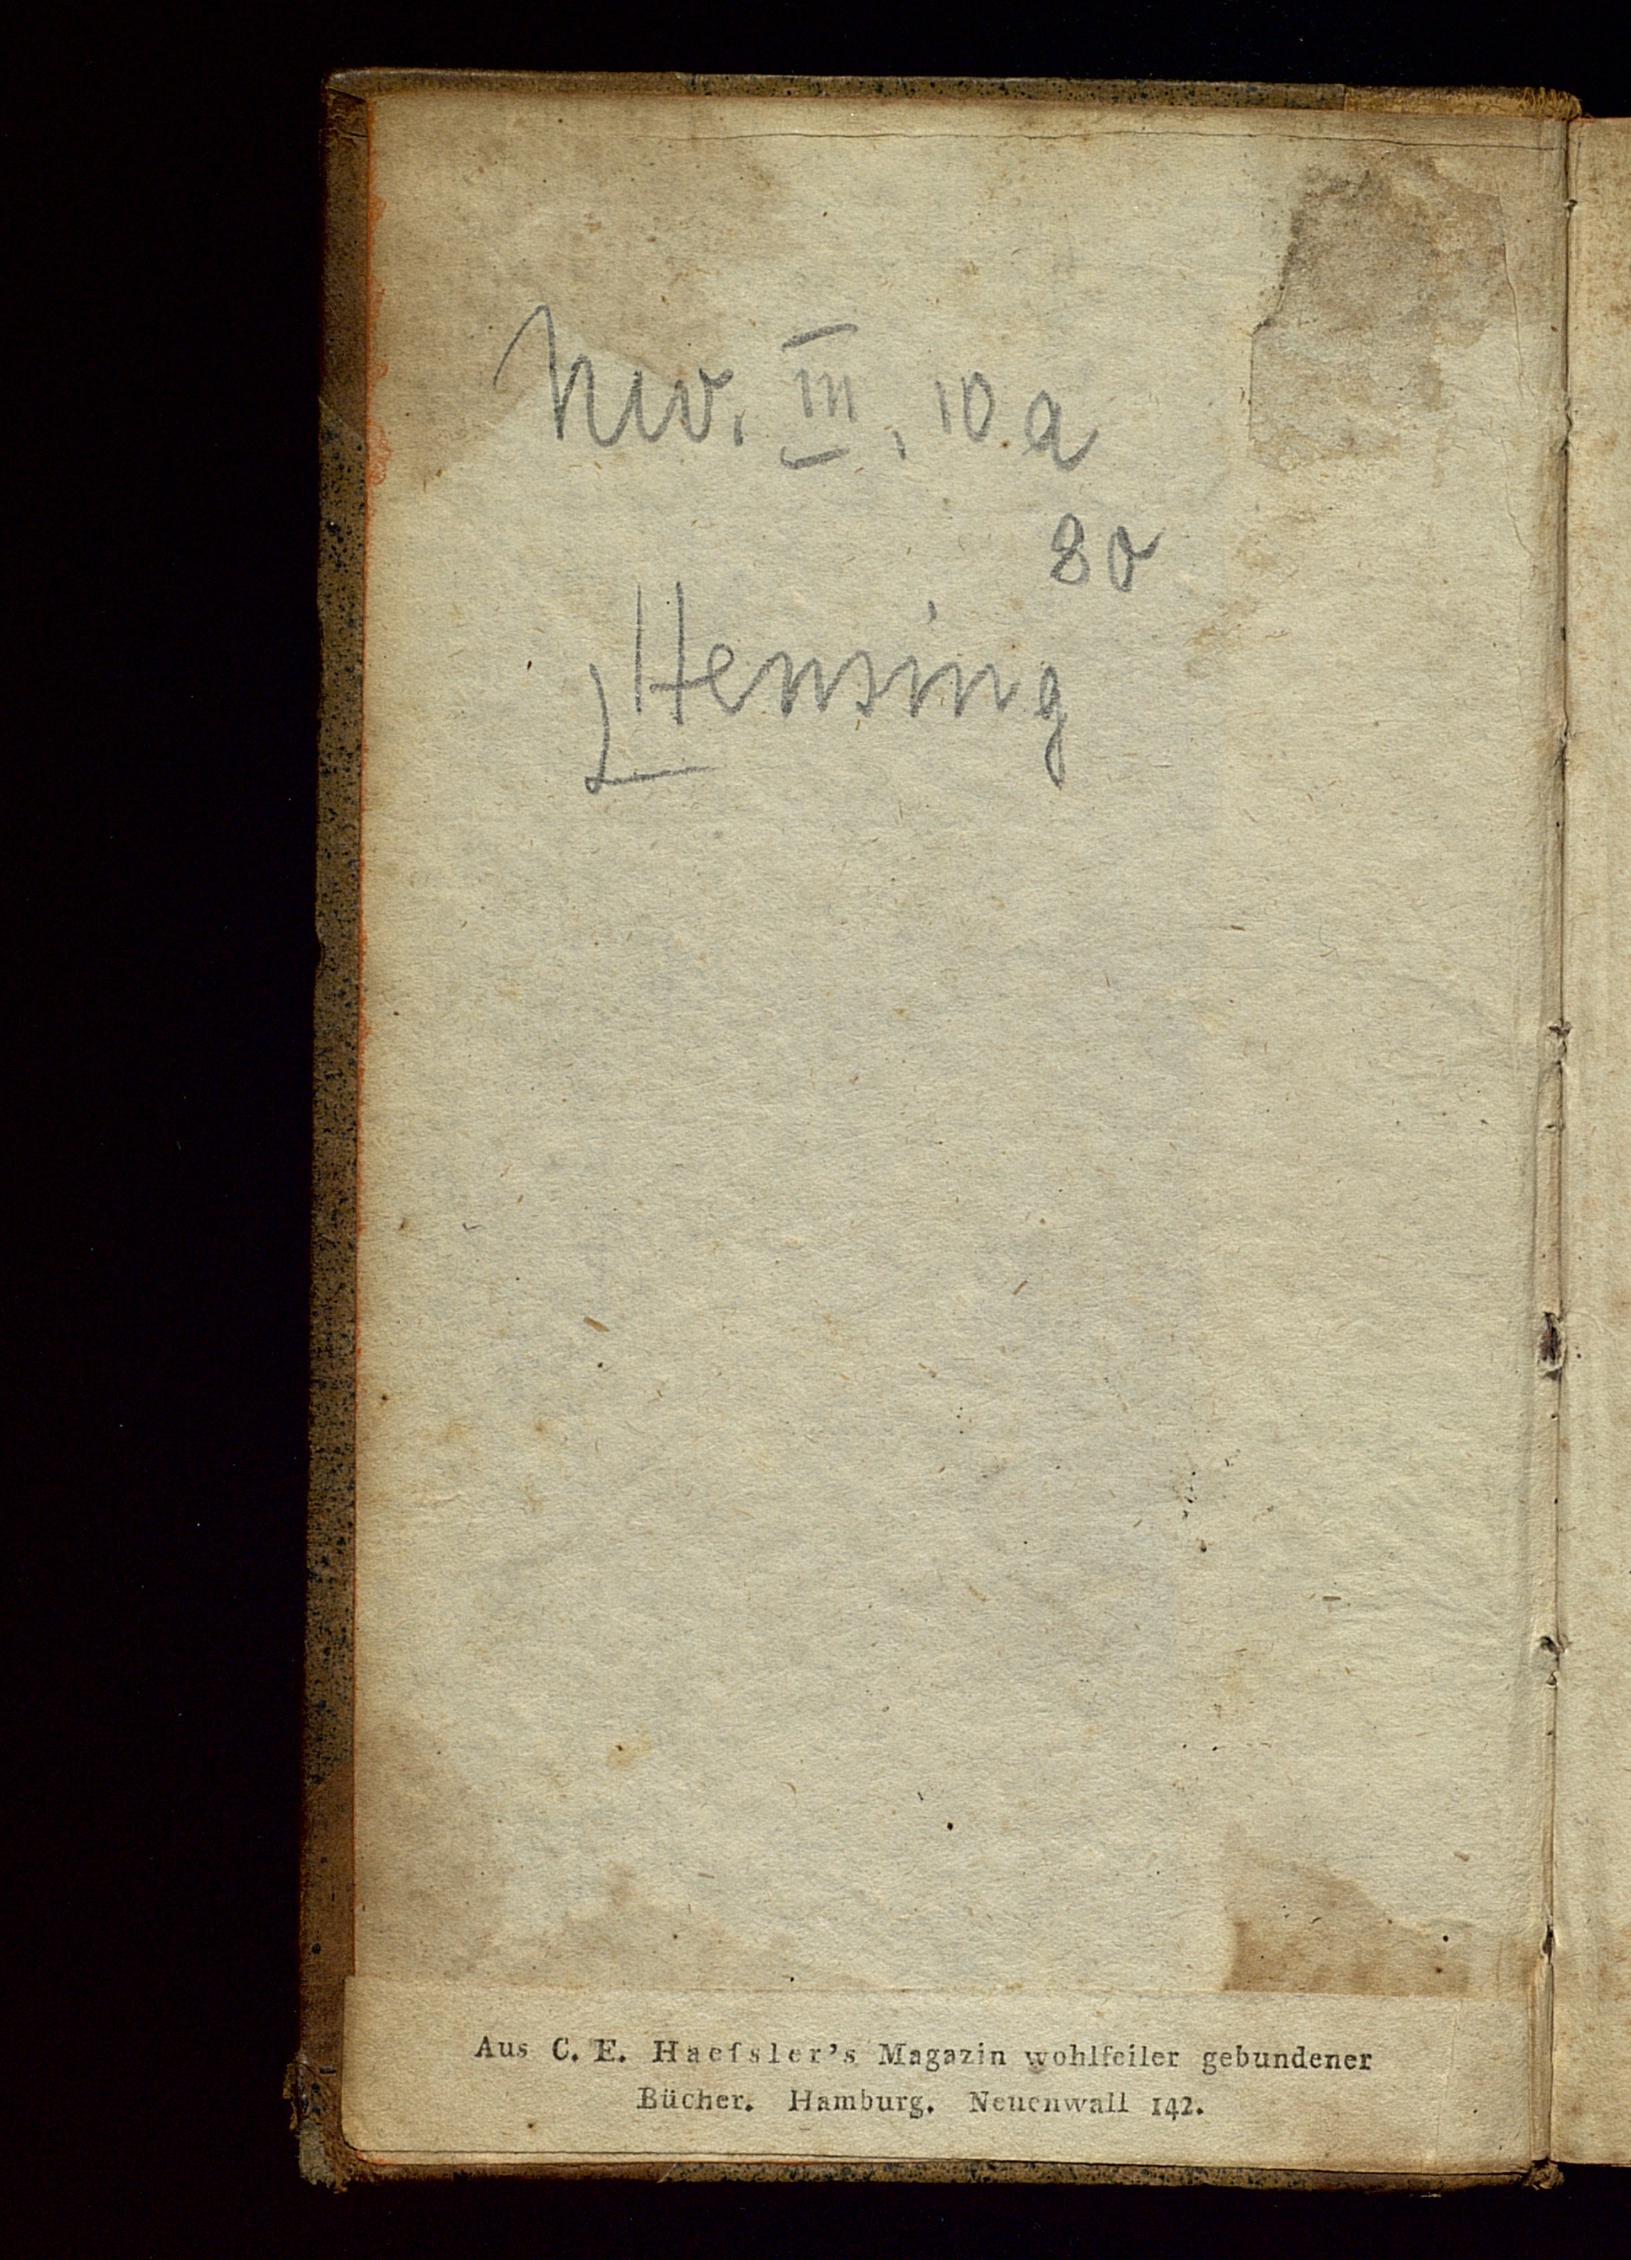 III, 10 a
80
Hensing
Aus C. E. Haeſsler's Magazin wohlfeiler gebundener
Bücher. Hamburg. Neuenwall 142.